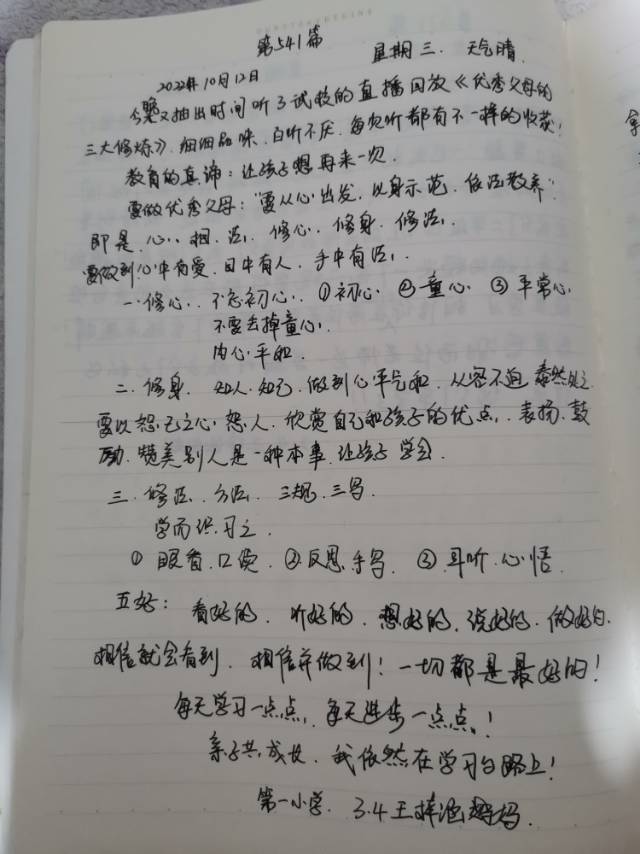 第541篇
2022年10月12日 星期三. 天气晴.
今晚又抽出时间听了试教的直播回放《优秀父母的
三大修炼》, 细细品味, 百听不厌. 每次听都有不一样的收获!
教育的真谛: 让孩子想再来一次.
要做优秀父母: "要从心出发, 以身示范, 依法教养".
即是心、相、法. 修心、修身、修法.
要做到心中有爱、目中有人、手中有法.
一. 修心. 不忘初心. ①初心 ②童心 ③平常心.
不要丢掉童心.
内心平和.
二. 修身. 知人、知己, 做到心平气和, 从容不迫 泰然处之
要以恕己之心恕人. 欣赏自己和孩子的优点, 表扬、鼓
励、赞美别人是一种本事. 让孩子学会.
三. 修法. 方法. 三规、三写.
学而识习之.
① 眼看、口读. ②反思、手写. ③耳听、心悟.
五好: 看好的、听好的、想好的、说好的、做好的.
相信就会看到. 相信并做到! 一切都是最好的!
每天学习一点点, 每天进步一点点!
亲子共成长. 我依然在学习的路上!
第一小学. 3.4王梓涵妈妈.